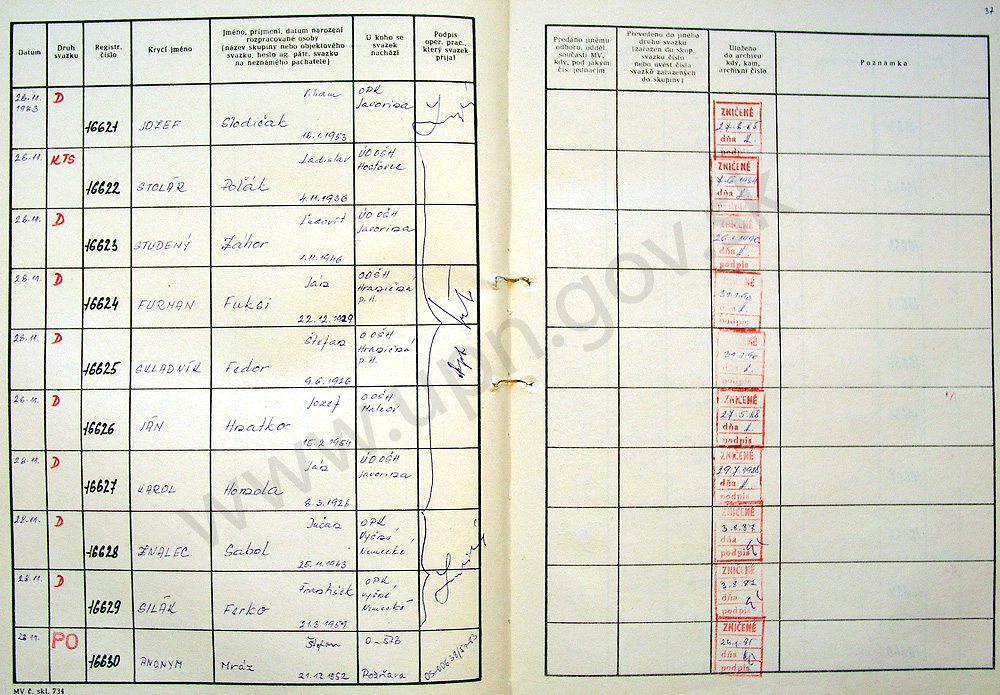 37
Datum
Druh svazku
Registr. číslo
Krycí jméno
Jméno, příjmení, datum narození
rozpracované osoby
(název skupiny nebo objektového
svazku, heslo ag. pátr. svazku
na neznámého pachatele)
U koho se
svazek
nachází
Podpis
oper. prac.,
který svazek
přijal
Předáno jinému
odboru, odděl.
součásti MV,
kdy, pod jakým
čís. jednacím
Převedeno do jiného
druhu svazku
(zařazen do skup.
svazku číslo
nebo uvést čísla
svazků zařazených
do skupiny)
Uloženo
do archivu
kdy, kam,
archivní číslo
Poznámka
26.11. 1983 D 16621 JOZEF Viliam Slodičák 16.1.1953 OPK Javorina
ZNIČENÉ
dňa
podpis
28.11. KTS 16622 STOLÁR Ladislav Poľák 4.11.1936 ÚO OŠH
ZNIČENÉ
7.6.1989
dňa
podpis
28.11. D 16623 STUDENÝ Ľudovít Záhor 1.11.1946 ÚO OŠH Javorina
ZNIČENÉ
26.1.1990
dňa
podpis
28.11. D 16624 FURMAN Ján Fuksi 22.12.1929 OOŠH Hraničná p.H.
31.1.90
dňa
podpis
28.11. D 16625 SKLADNÍK Štefan Fedor 9.6.1926 OOŠH Hraničná p.H.
31.1.90
dňa
podpis
28.11. D 16626 JÁN Jozef Hnatko 15.2.1954 OOŠH
ZNIČENÉ
27.5.88
dňa
podpis
28.11. D 16627 KAROL Ján Homola 6.3.1926 ÚO OŠH Javorina
ZNIČENÉ
29.7.1988
dňa
podpis
28.11. D 16628 ZNALEC Sabol 25.11.1943 OPK Vyšné Nemecké
ZNIČENÉ
3.8.87
dňa
podpis
28.11. D 16629 SILÁK František Ferko 21.3.1959 OPK Vyšné Nemecké
ZNIČENÉ
3.8.87
dňa
podpis
28.11. PO 16630 ANONYM Štefan Mráz 21.12.1952
ZNIČENÉ
dňa
podpis
MV č. skl. 734
www.upn.gov.sk